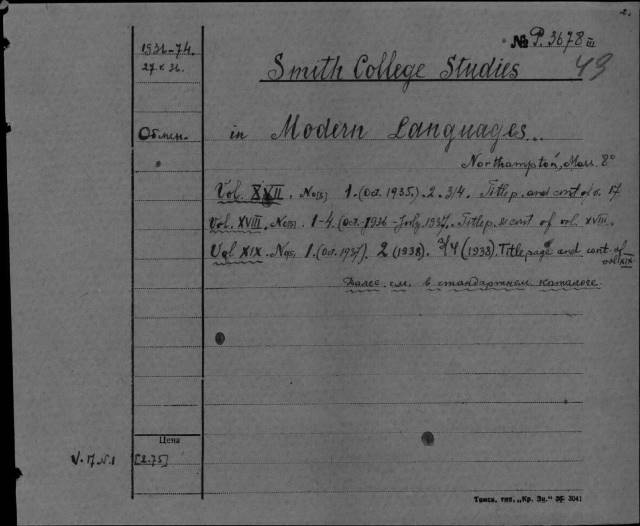 2.
№ P. 3678 III
49
1936-74.
27.X 36.
Smith College Studies
Обмен.
in Modern Languages..
Northampton, Mass. 8°
Vol. XVII, No(s) 1. (Oct. 1935). 2. 3/4. Title p. and cont. of v. 17
Vol. XVIII. No(s). 1-4. (Oct.-1936 - July 1937. Title p. & cont. of vol. XVIII.
Vol XIX. No(s) 1. (Oct. 1937). 2 (1938). 3/4 (1938). Title page and cont. of vol XIX.
Далее см. в стандартнем каталоге.
Цена
V. 17 N. 1 [2.75]
Томск, тип. „Кр. Зн.“ 3041